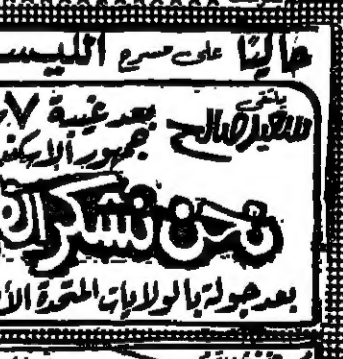 حاليًا على مسرح الليسـ
يلتقى
سعيد صالح بعد غيبة ٧
جمهور الإسكند
نحن نشكر ا
بعد جولة بالولايات المتحدة الأ